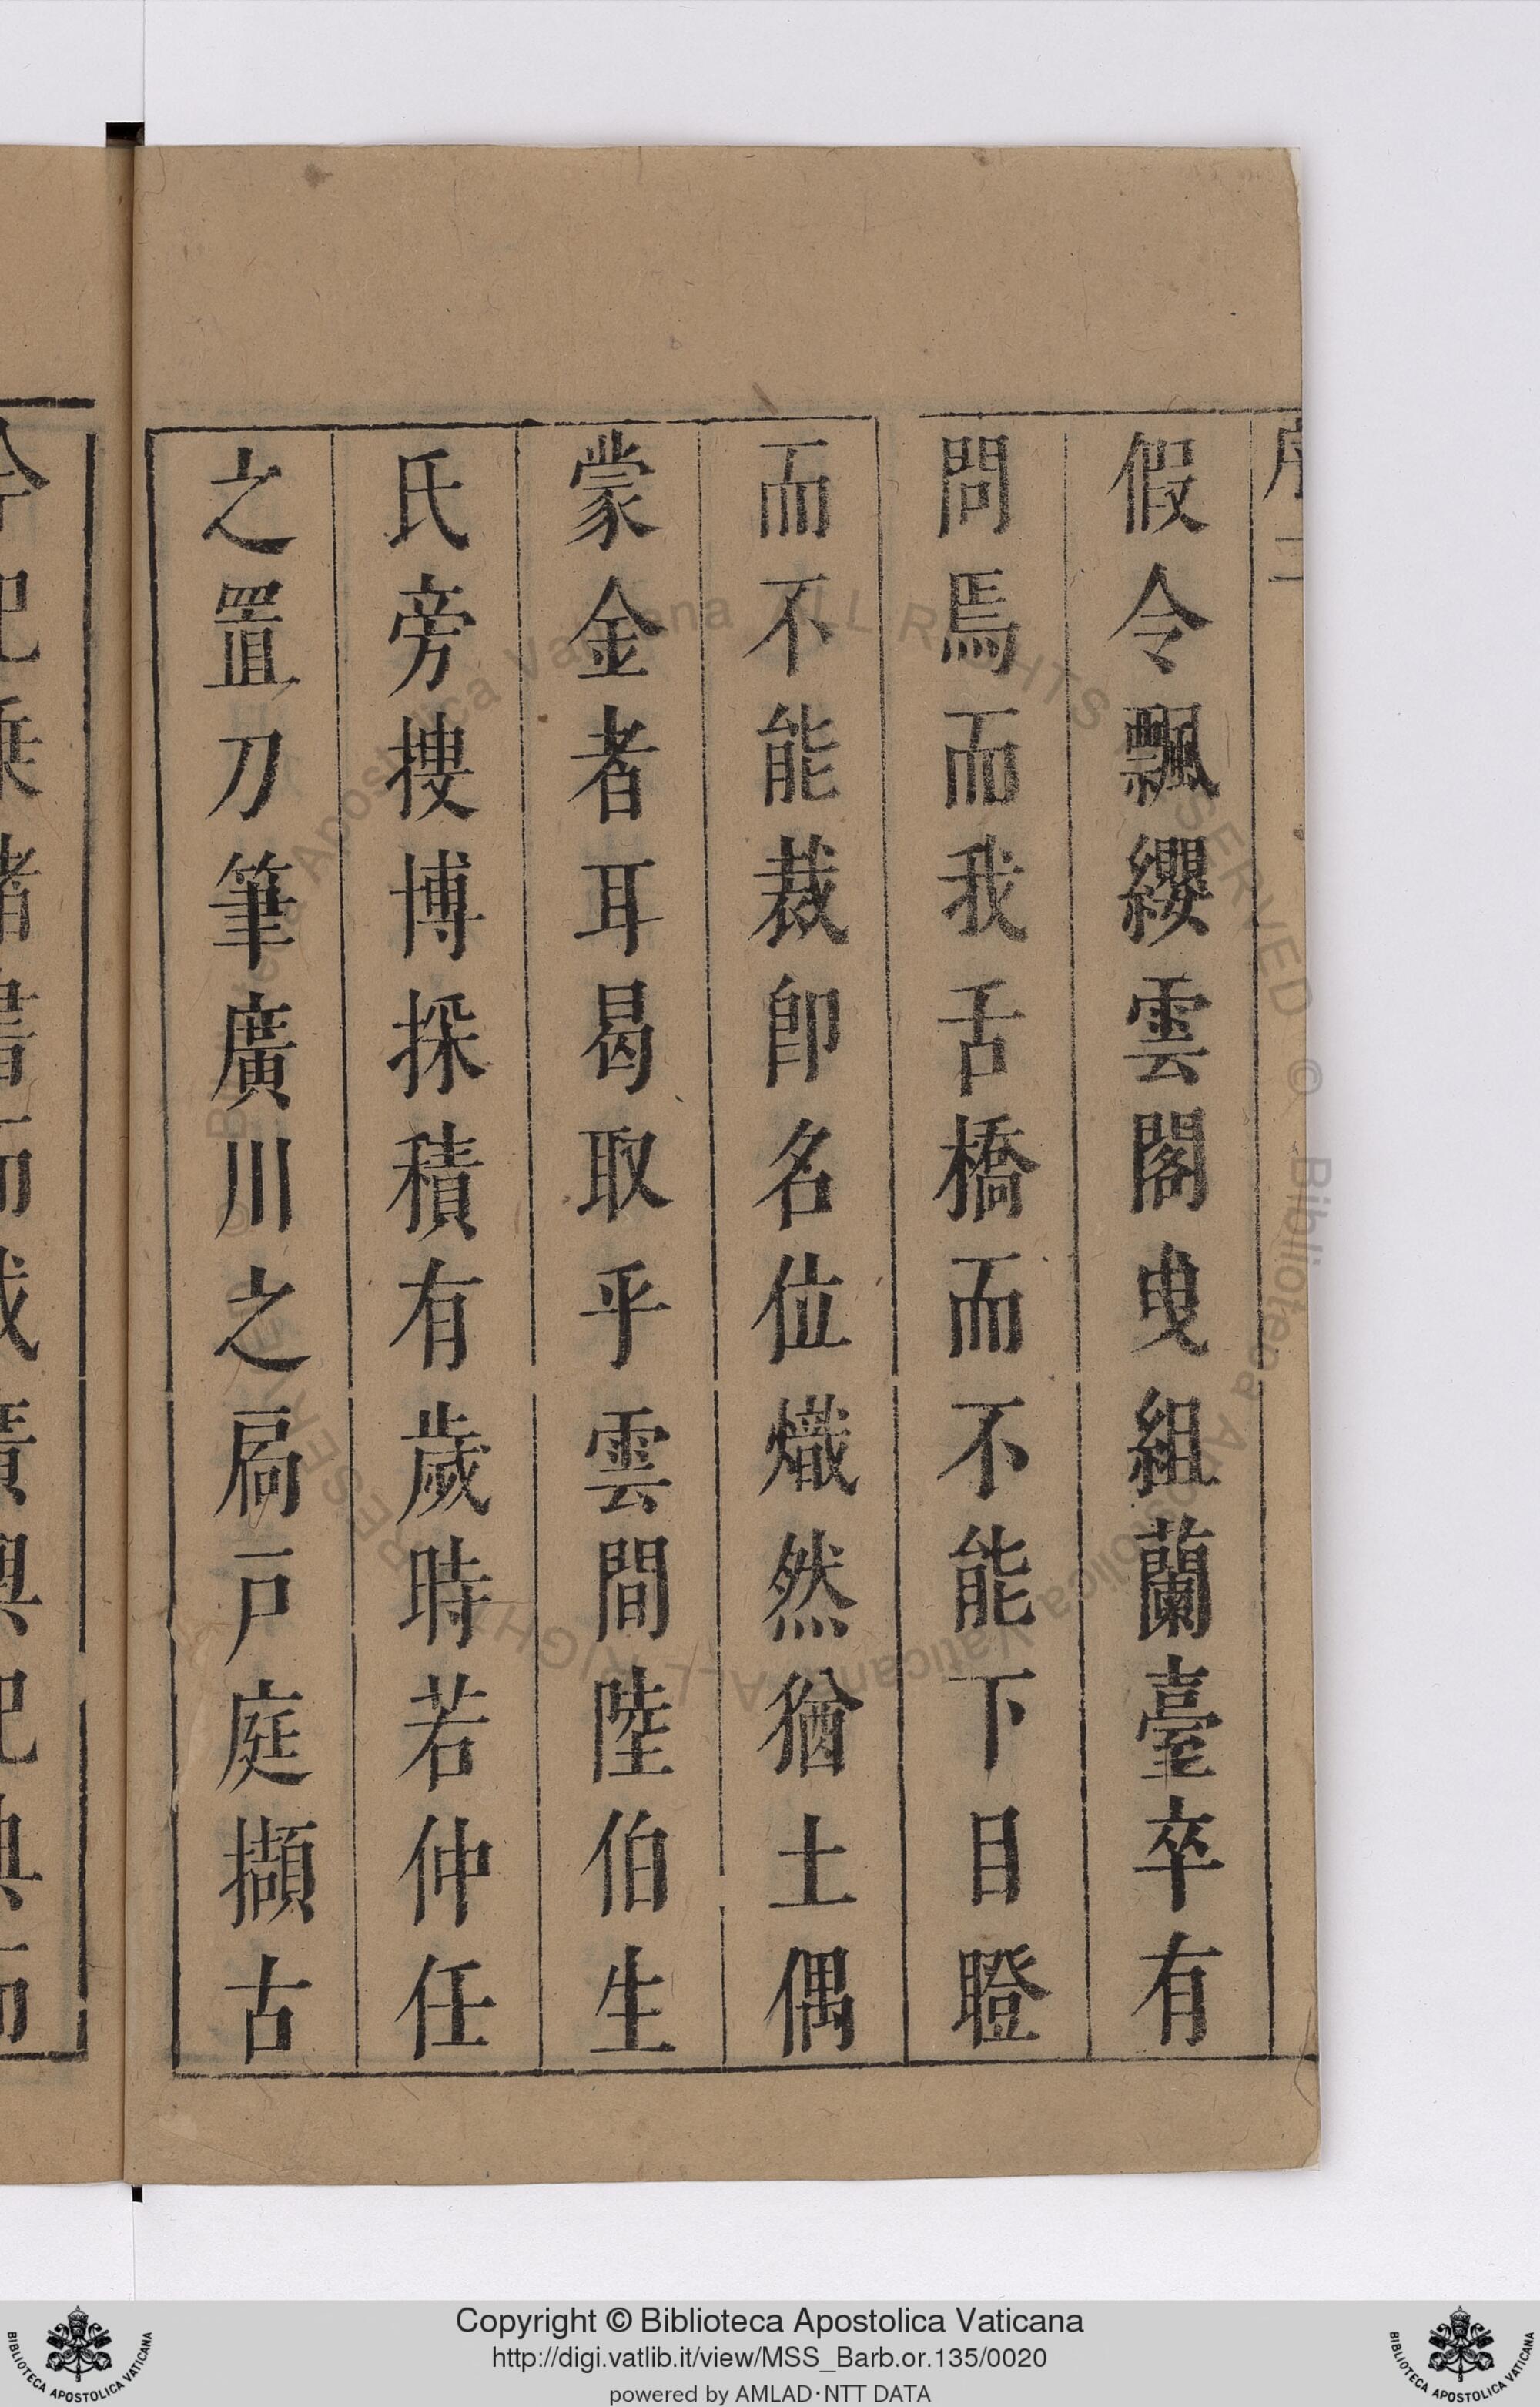 序二
假令飄纓雲閣曳組蘭臺卒有
問焉而我舌橋而不能下目瞪
而不能裁卽名位熾然猶土偶
蒙金者耳曷取乎雲間陸伯生
氏旁搜博採積有歲時若仲任
之置刀筆廣川之扃戸庭擷古
Copyright © Biblioteca Apostolica Vaticana
http://digi.vatlib.it/view/MSS_Barb.or.135/0020
powered by AMLAD·NTT DATA
BIBLIOTECA APOSTOLICA VATICANA
BIBLIOTECA APOSTOLICA VATICANA